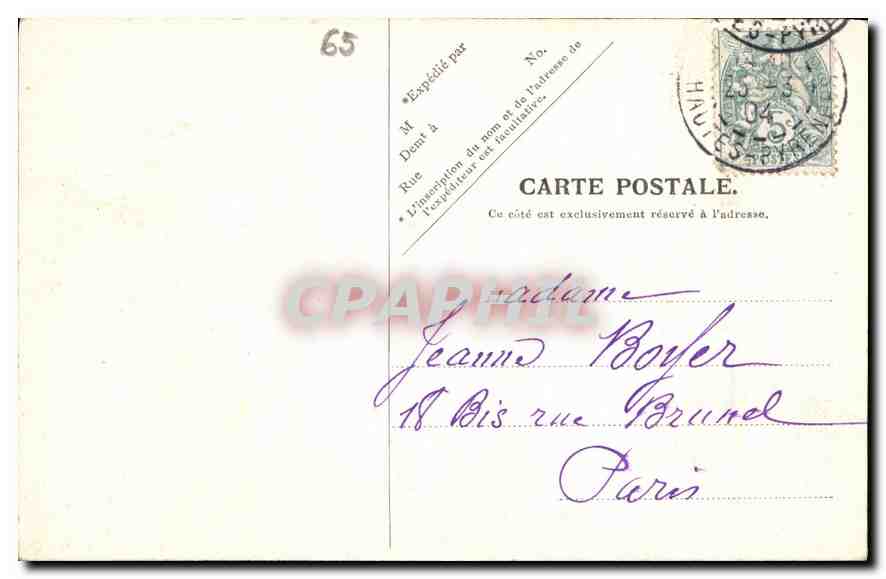 65
*Expédié par
No.
M
Demt à
Rue
* L'inscription du nom et de l'adresse de
l'expéditeur est facultative.
HAUTES-PYRENEES
04
5
CARTE POSTALE.
Ce côté est exclusivement réservé à l'adresse.
CPAPHIL
Madame
Jeanne Boyer
18 Bis rue Brunel
Paris